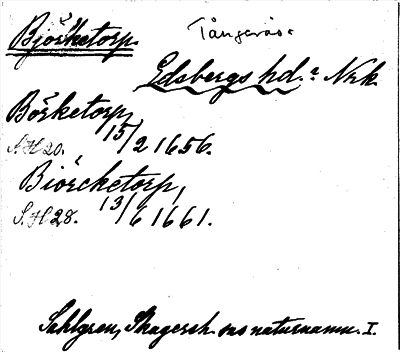 Björketorp. Tångerås:
Edsbergs hd. Nrk.
Börketorp,
S.H 20. 15/2 1656.
Biörcketorp,
S.H 28. 13/6 1661.
Sahlgren, Skagersh. ons naturnamn. I.